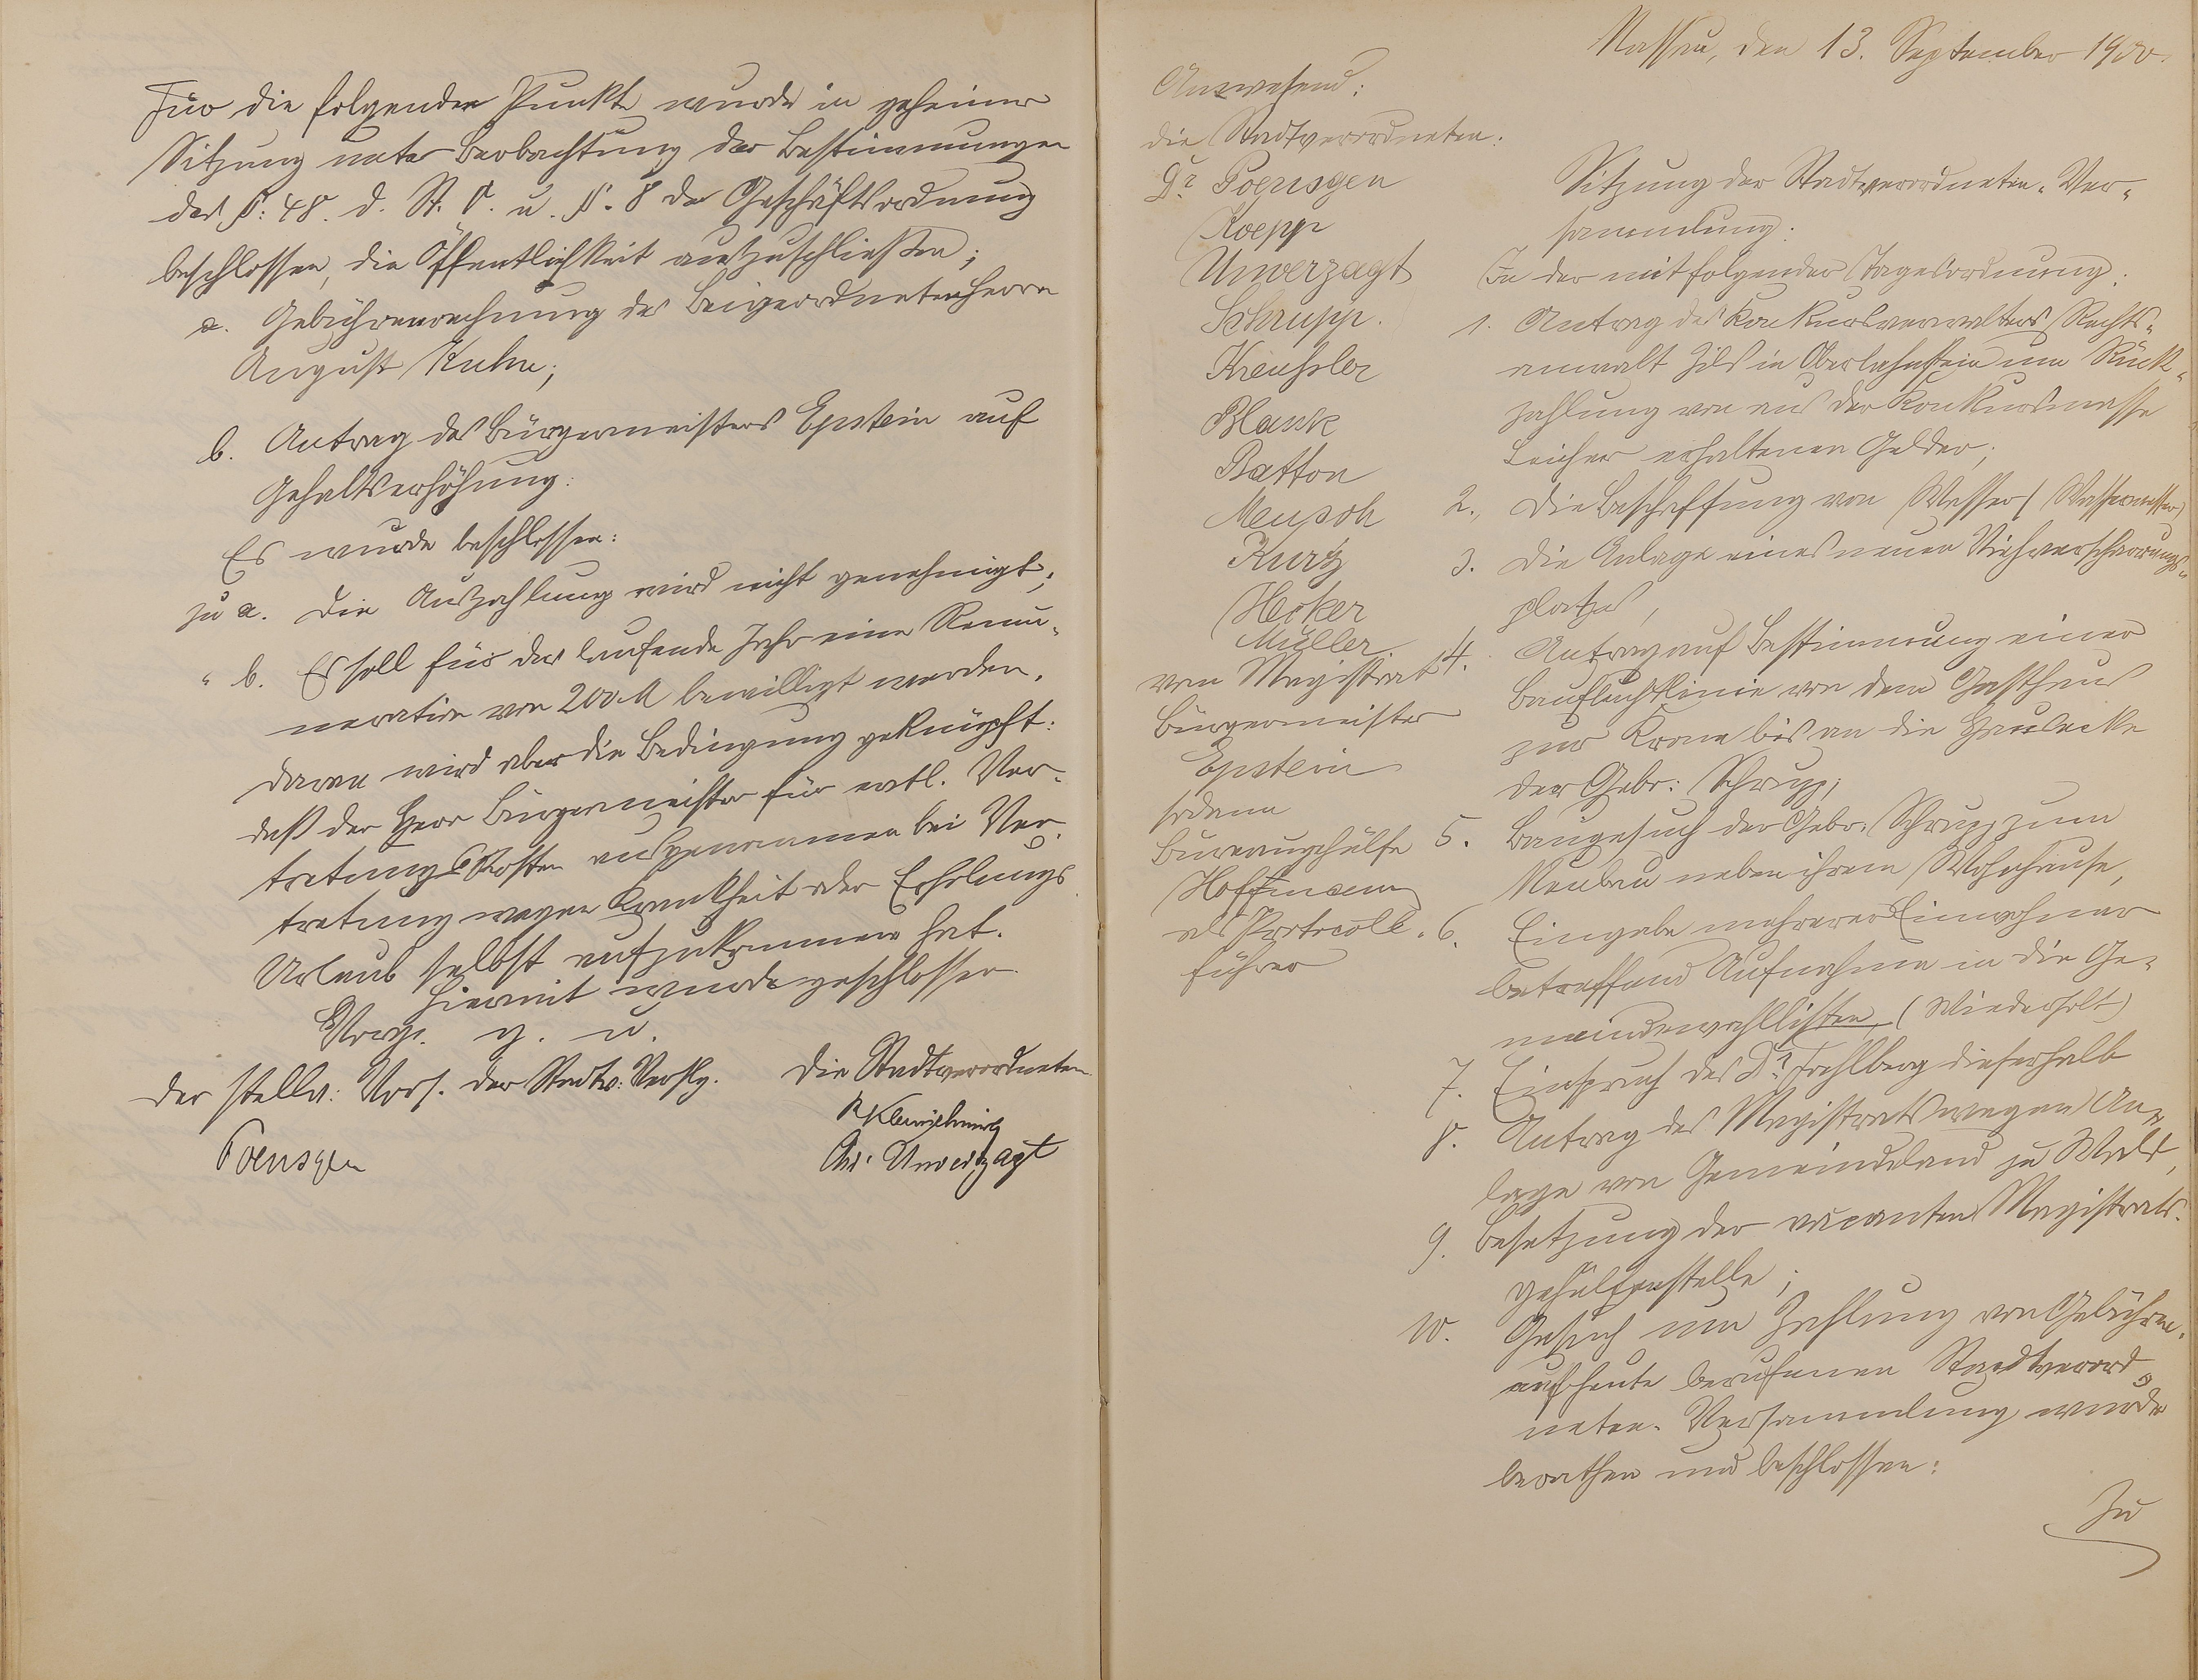 Für die folgenden Punkte wurde in geheimer
Sitzung unter Beobachtung der Bestimmungen
des §: 48. d. St. O. u. §. 8 der Geschäftsordnung
beschlossen, die Öffentlichkeit auszuschließen;
a. Gebührenrechnung des Beigeordneten Herrn
August Kuhn;
b. Antrag des Bürgermeisters Epstein auf
Gehaltserhöhung:
Es wurde beschlossen:
zu a. Die Auszahlung wird nicht genehmigt;
" b. Es soll für das laufende Jahr eine Remu-
neration von 200 M bewilligt werden.
Daran wird aber die Bedingung geknüpft:
daß der Herr Bürgermeister für evtl. Ver-
tretungskosten ausgenommen bei Ver-
tretung wegen Krankheit oder Erholungs
Urlaub selbst aufzukommen hat.
Hiermit wurde geschlossen.
Vorg. g. u.
Der stellv: Vors. der Stadtv: Verslg.
Poensgen
Die Stadtverordneten
Chr. Unverzagt
Nassau, den 13. September 1900.
Anwesend:
die Stadtverordneten:
Dr. Poensgen
Koepp
Unverzagt
Schrupp.
Kreußler
Blank
Batton
Meusch
Kurtz
Heker
Müller.
vom Magistrat
Bürgermeister
Epstein
sodann
Bureaugehülfe
Hoffmann
als Protocoll-
führer
Sitzung der Stadtverordneten-Ver-
sammlung.
In der mit folgender Tagesordnung:
1. Antrag des Konkursverwalters Rechts-
anwalt Hils in Oberlahnstein um Rück-
zahlung von aus der Konkursmasse
Leicher erhaltenen Gelder;
2. Die Beschaffung von Messer (Wassermesser)
3. Die Anlage eines neuen Viehverscharrungs-
platzes,
4. Antrag auf Bestimmung einer
Baufluchtlinie von dem Gasthaus
zur Krone bis an die Hausecke
der Gebr: Schrupp;
5. Baugesuch der Gebr. Schrupp zum
Neubau neben ihrem Wohnhause,
6. Eingabe mehrerer Einwohner
betreffend Aufnahme in die Ge-
meindewahllisten, (Wiederholt)
7. Einspruch des Dr. Fahlberg dieserhalb
8. Antrag des Magistrats wegen An-
lage von Gemeindeland zu Wald,
9. Besetzung der vacanten Magistrats-
gehülfenstelle;
10. Gesuch um Zahlung von Gebühren.
auf heute berufenen Stadtverord-
neten-Versammlung wurde
berathen und beschlossen:
Zu